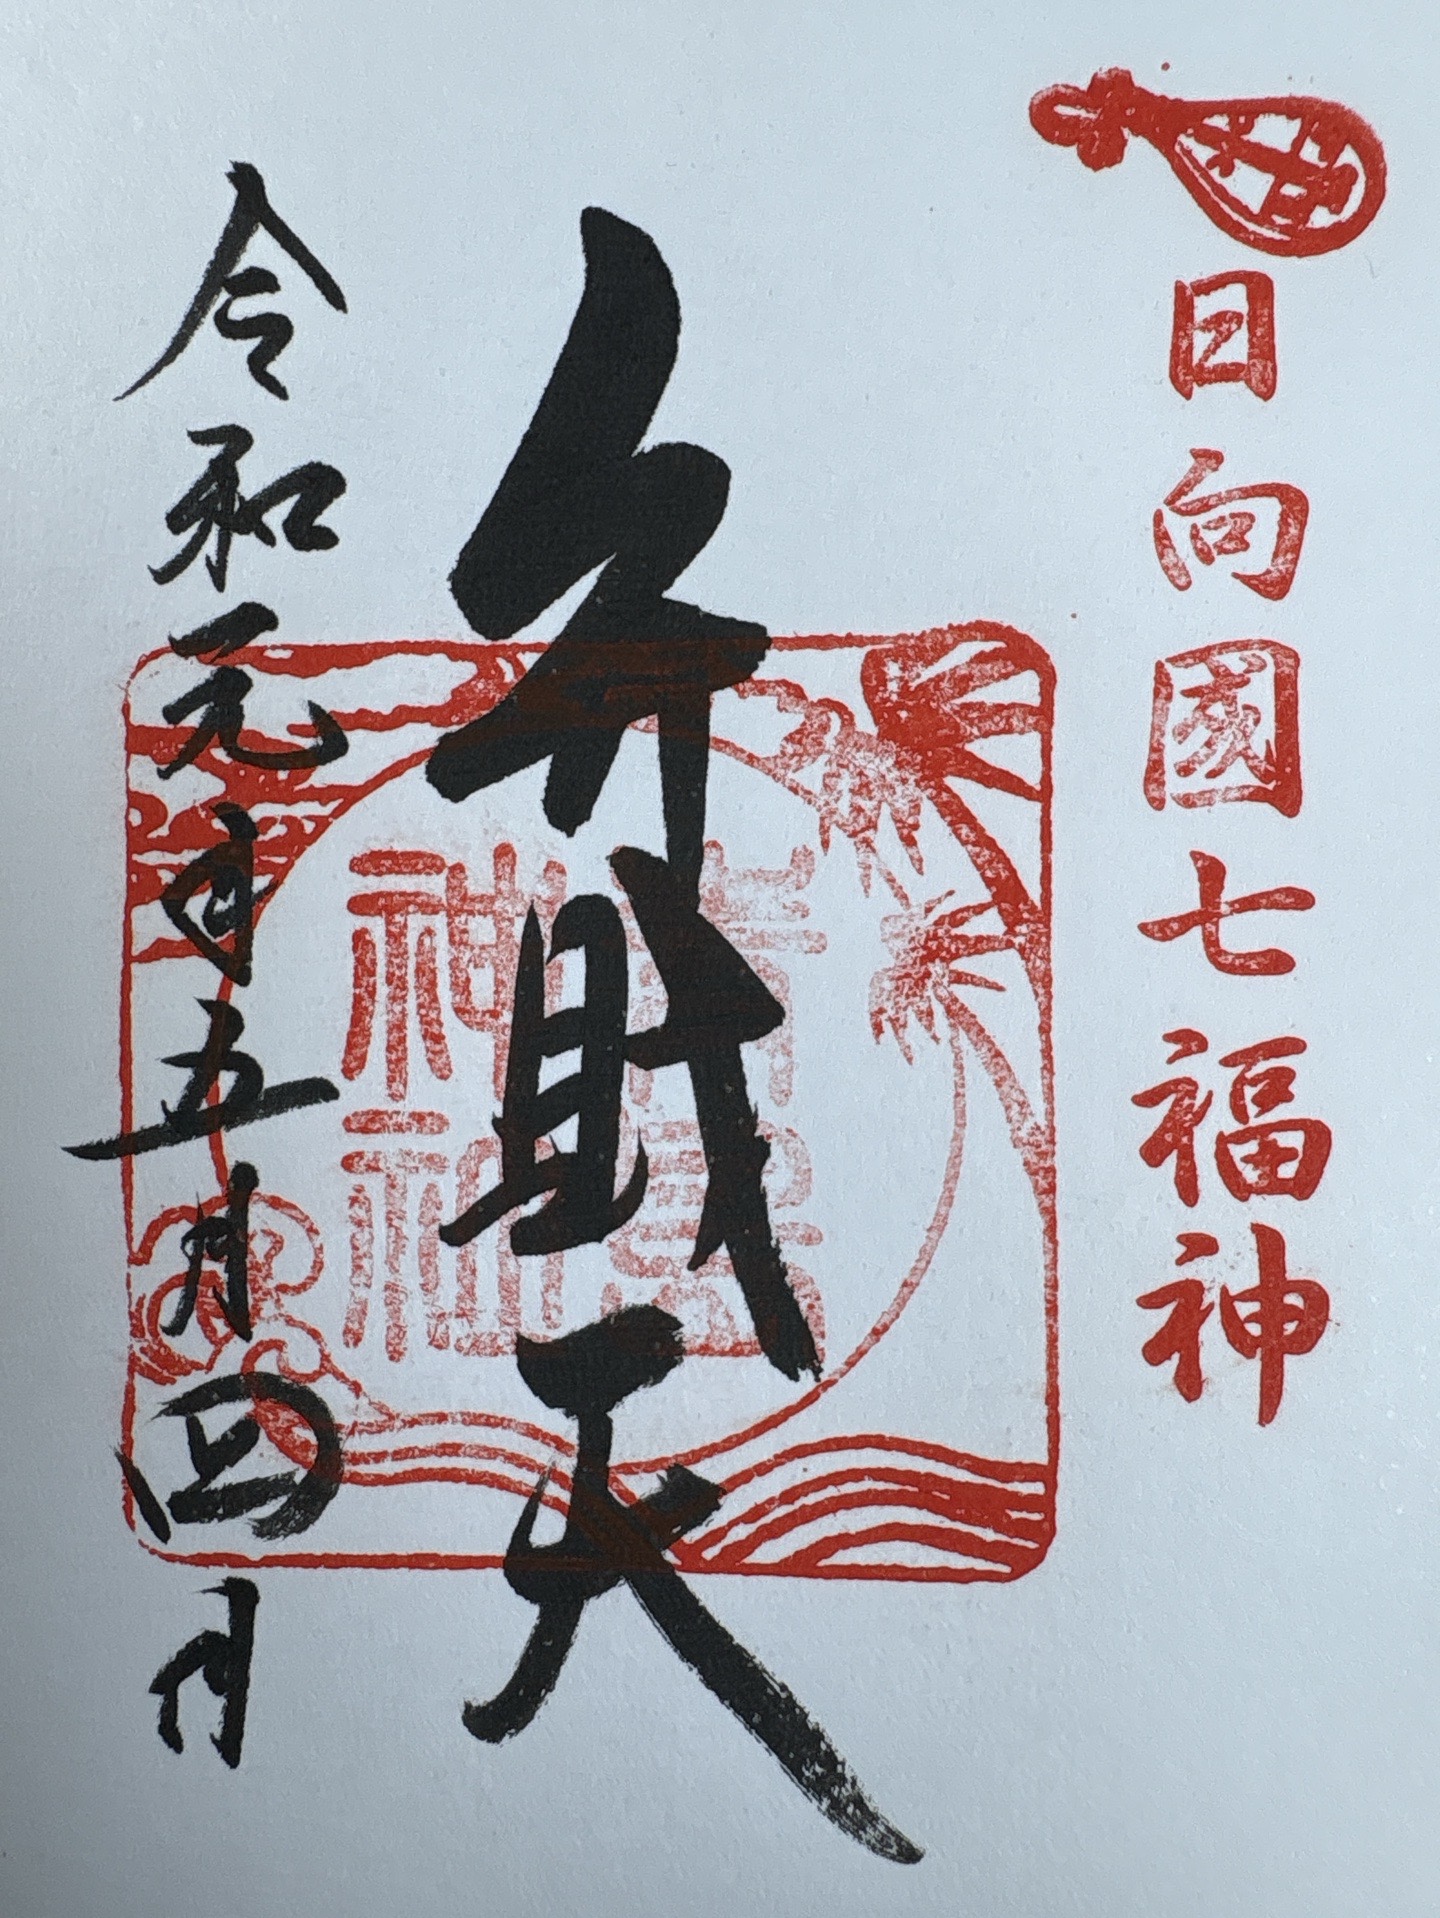 日向國七福神
弁財天
青島
神
令和元年五月四日